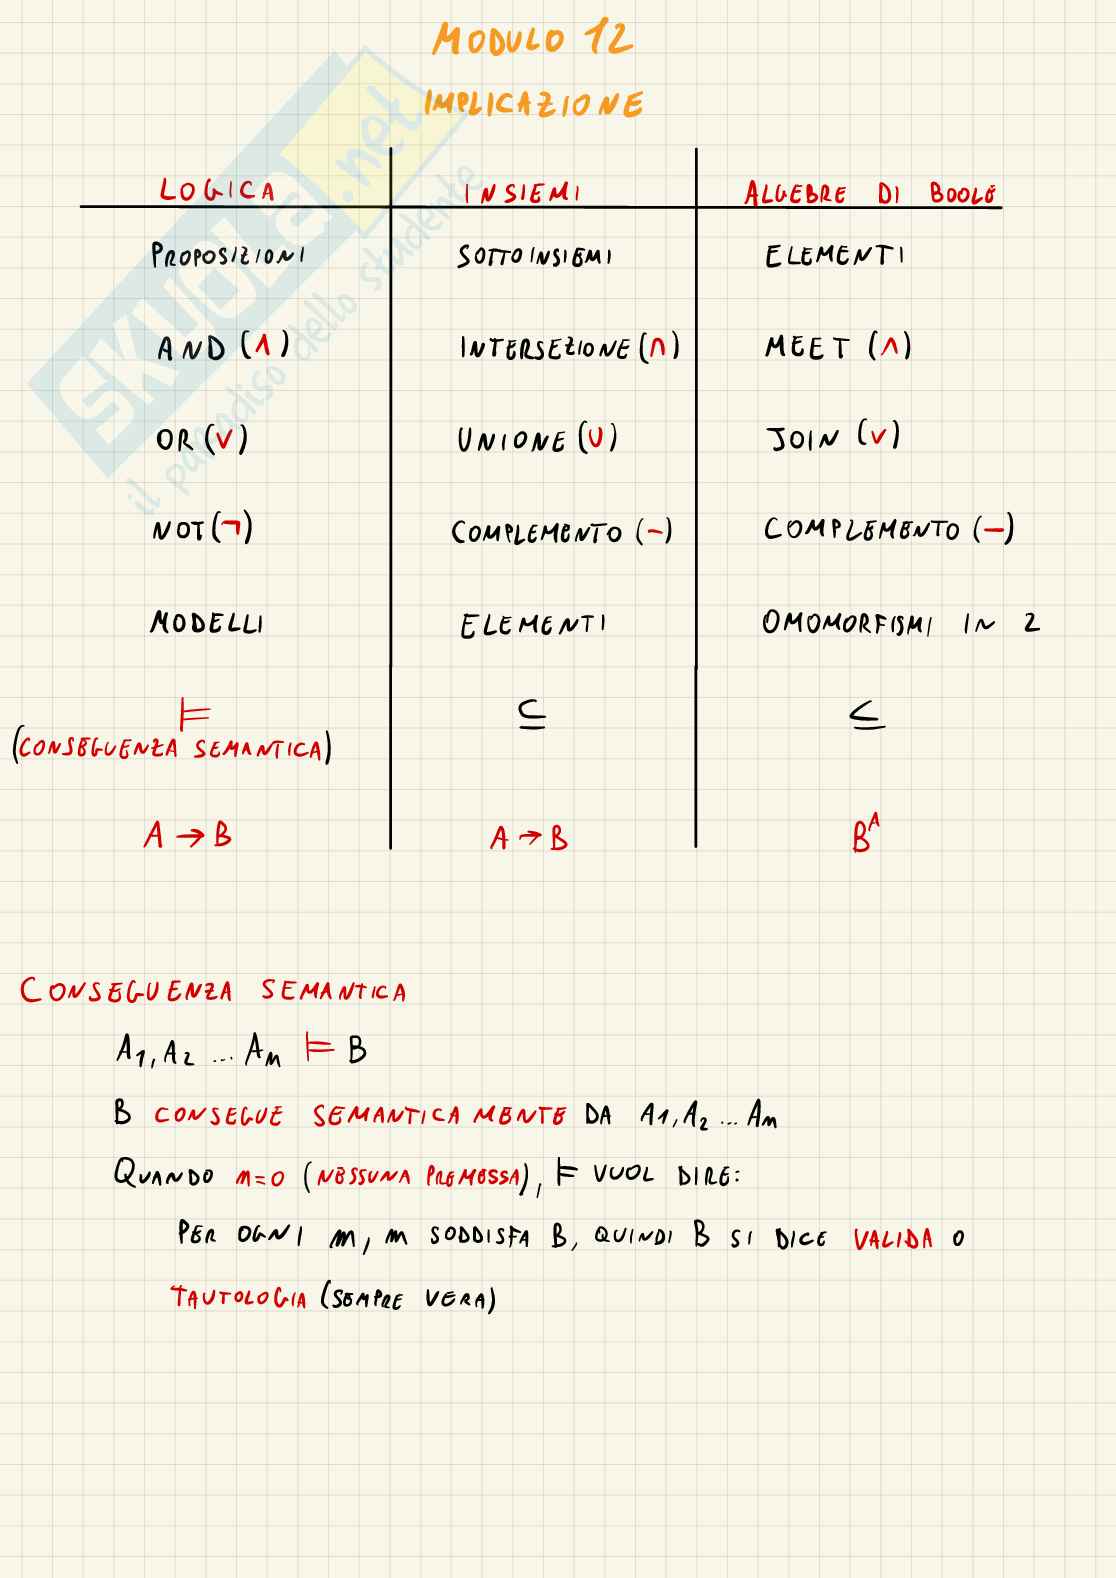 MODULO 12
IMPLICAZIONE
LOGICA INSIEMI ALGEBRE DI BOOLE
PROPOSIZIONI SOTTOINSIEMI ELEMENTI
AND (∧) INTERSEZIONE (∩) MEET (∧)
OR (∨) UNIONE (∪) JOIN (∨)
NOT (¬) COMPLEMENTO (−) COMPLEMENTO (−)
MODELLI ELEMENTI OMOMORFISMI IN 2
⊨ ⊆ ≤
(CONSEGUENZA SEMANTICA)
A → B A → B B^A
CONSEGUENZA SEMANTICA
A1, A2 ... Am ⊨ B
B CONSEGUE SEMANTICAMENTE DA A1, A2 ... Am
QUANDO m=0 (NESSUNA PREMESSA), ⊨ VUOL DIRE:
PER OGNI m, m SODDISFA B, QUINDI B SI DICE VALIDA O
TAUTOLOGIA (SEMPRE VERA)
SKUOLA.net
il paradiso dello studente